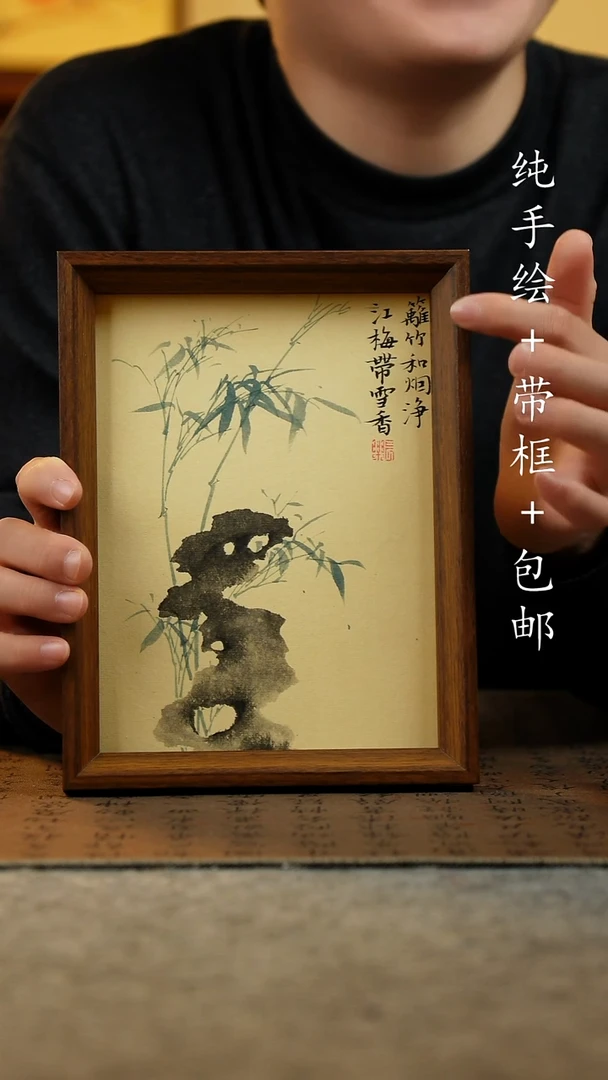 籬竹和烟净
江梅帶雪香
纯手绘+带框+包邮